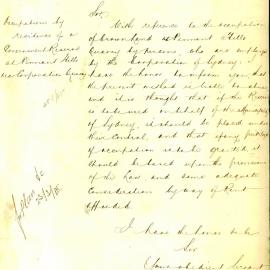 Occupations by
residence of a
Government Reserve
at Pennant Hills
Corporation Quarry
Sir,
With reference to the occupation
of Crown land at Pennant Hills
Quarry by persons who are employed
by the Corporation of Sydney, I
have the honor to inform you, that
the present method is liable to abuse
and it is thought that if the Reserve
is to be used on behalf of the
of Sydney, it should be placed under
their control, and that if any
of occupation is to be granted, it
should be based upon the provisions
of the Law, and some adequate
consideration by way of Rent
I have the honor to be
Sir
Your obedient Servant